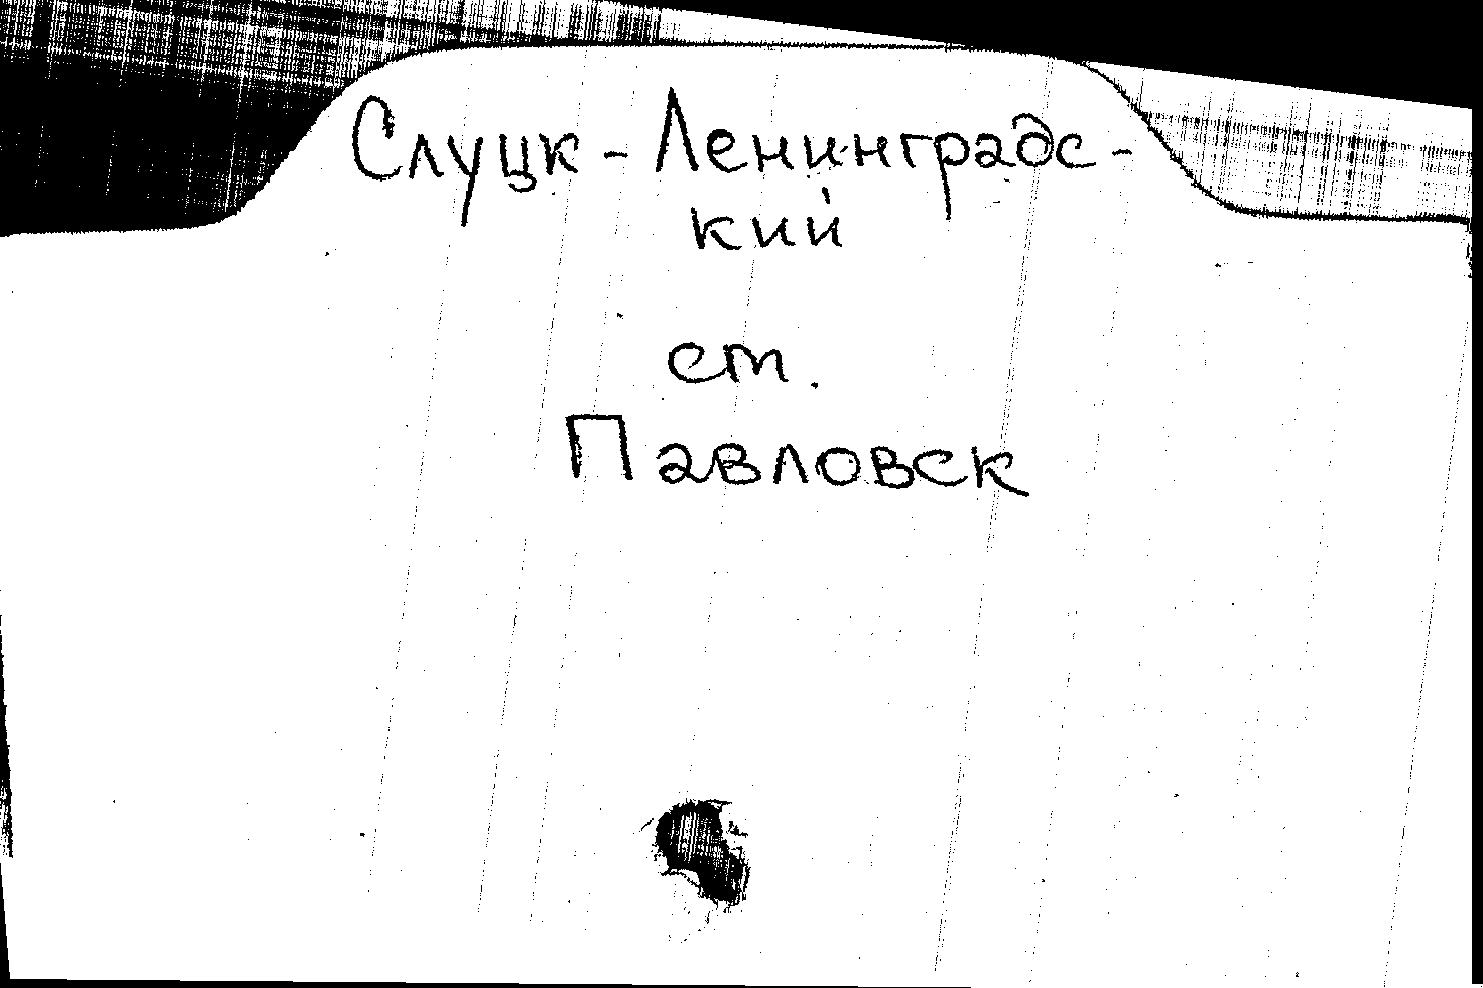 Слуцк - Ленинградс-
кий
ст.
Павловск